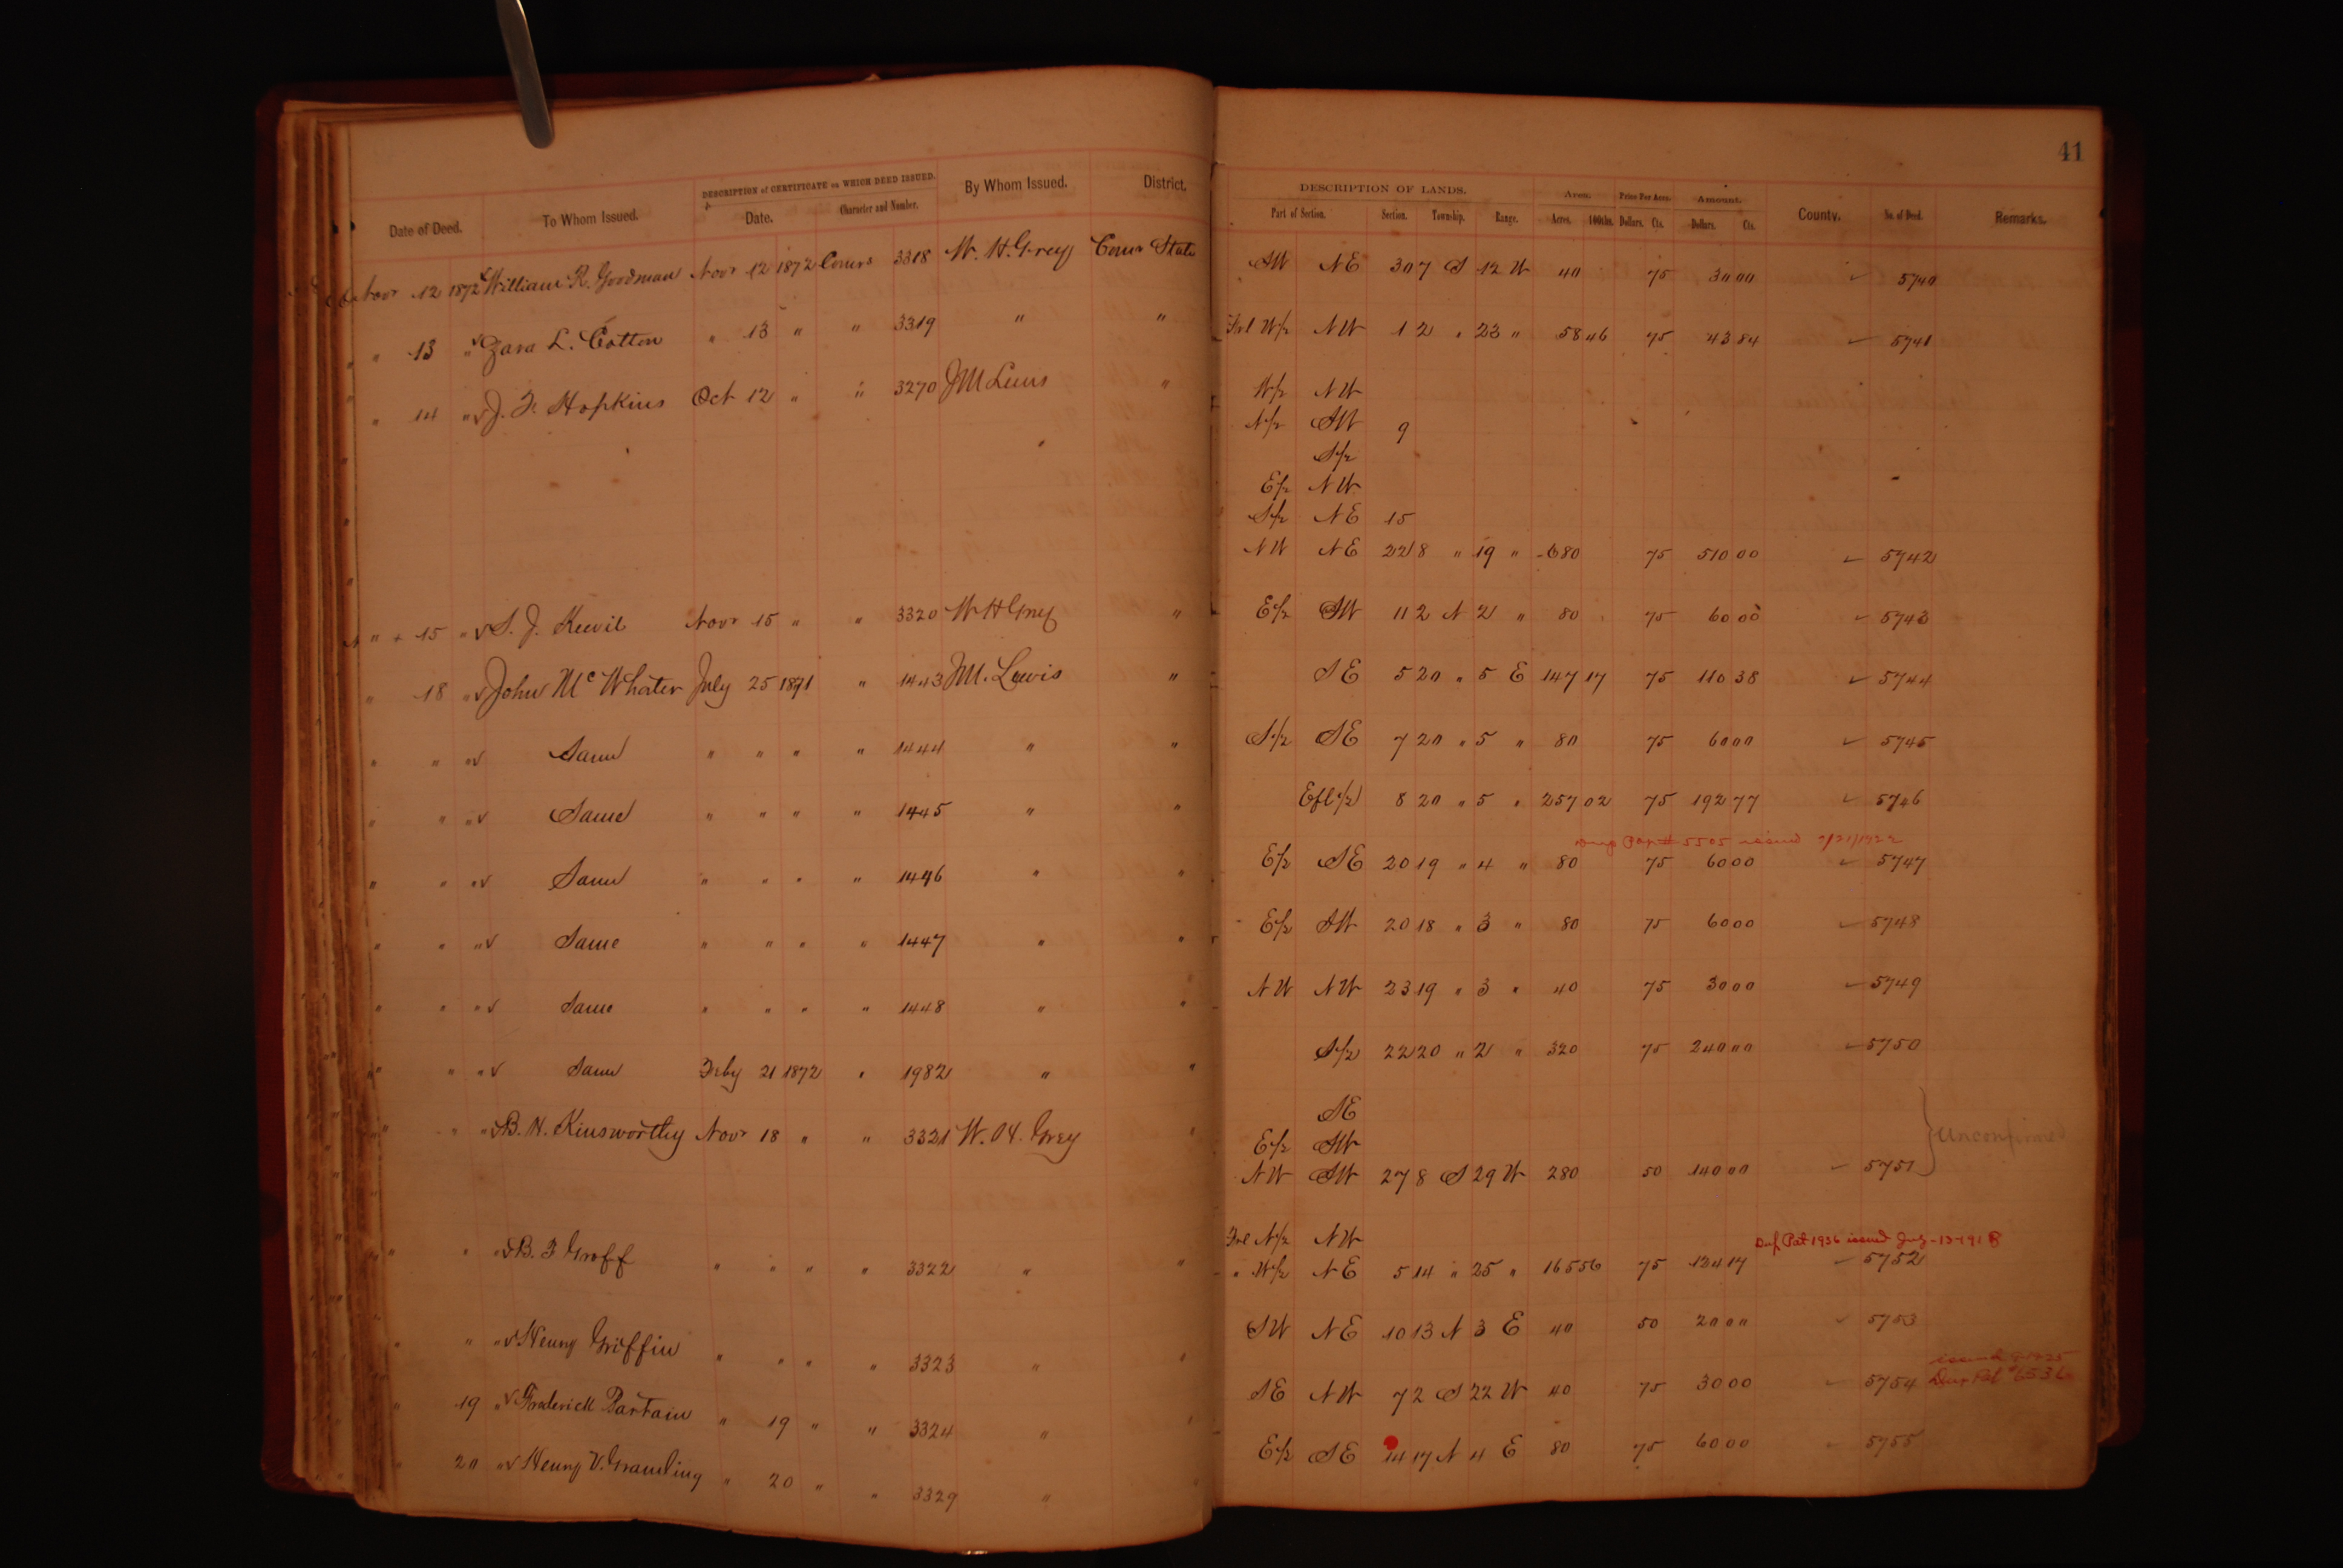 41
DESCRIPTION of CERTIFICATE on WHICH DEED ISSUED. By Whom Issued. District. DESCRIPTION OF LANDS. Area. Price Per Acre. Amount.
Date of Deed. To Whom Issued. Date. Character and Number. Part of Section. Section. Township. Range. Acres. 100ths. Dollars. Cts. Dollars. Cts. County. No. of Deed. Remarks.
Novr 12 1872 William R. Goodman Novr 12 1872 Comrs 3318 W. H. Grey Comr State SW NE 30 7 S 12 W 40 75 30 00 ✓ 5740
" 13 " L. Cotton " 13 " " 3319 " " Frl W/2 NW 1 2 " 23 " 58 46 75 43 84 ✓ 5741
" 14 " J. F. Hopkins Oct 12 " " 3270 J M Lewis " W/2 NW
N/2 SW 9
S/2
E/2 NW
S/2 NE 15
NW NE 22 8 " 19 " 680 75 510 00 ✓ 5742
" 15 " S. J. Kewil Novr 15 " " 3320 W H Grey " E/2 SW 11 2 N 2 " 80 75 60 00 ✓ 5743
" 18 " John Mc Whorter July 25 1871 " 1443 J M. Lewis " SE 5 20 " 5 E 147 17 75 110 38 ✓ 5744
" " " Same " " " " 1444 " " S/2 SE 7 20 " 5 " 80 75 60 00 ✓ 5745
" " " Same " " " " 1445 " " E fl 1/2 8 20 " 5 " 257 02 75 192 77 ✓ 5746
Dup Pat # 5505 issued
" " " Same " " " " 1446 " " E/2 SE 20 19 " 4 " 80 75 60 00 ✓ 5747
" " " Same " " " " 1447 " " E/2 SW 20 18 " 3 " 80 75 60 00 ✓ 5748
" " " Same " " " " 1448 " " NW NW 23 19 " 3 " 40 75 30 00 ✓ 5749
" " " Same Feby 21 1872 " 1982 " " S/2 22 20 " 2 " 320 75 240 00 ✓ 5750
" " " B. H. Kinsworthy Novr 18 " " 3321 W. H. Grey " SE
E/2 SW Unconfirmed
NW SW 27 8 S 29 W 280 50 140 00 ✓ 5751
" " " B. F Groff " " " " 3322 " " Frl N/2 NW
Dup Pat 1936 issued
" W/2 NE 5 14 " 25 " 165 56 75 124 17 ✓ 5752
" " " Henry Griffin " " " " 3323 " " SW NE 10 13 N 3 E 40 50 20 00 ✓ 5753
" 19 " Frederick Partain " 19 " " 3324 " " SE NW 7 2 S 22 W 40 75 30 00 ✓ 5754
issued
Dup Pat
" 20 " Henry V. Gramling " 20 " " 3329 " E/2 SE 14 17 N 4 E 80 75 60 00 5755